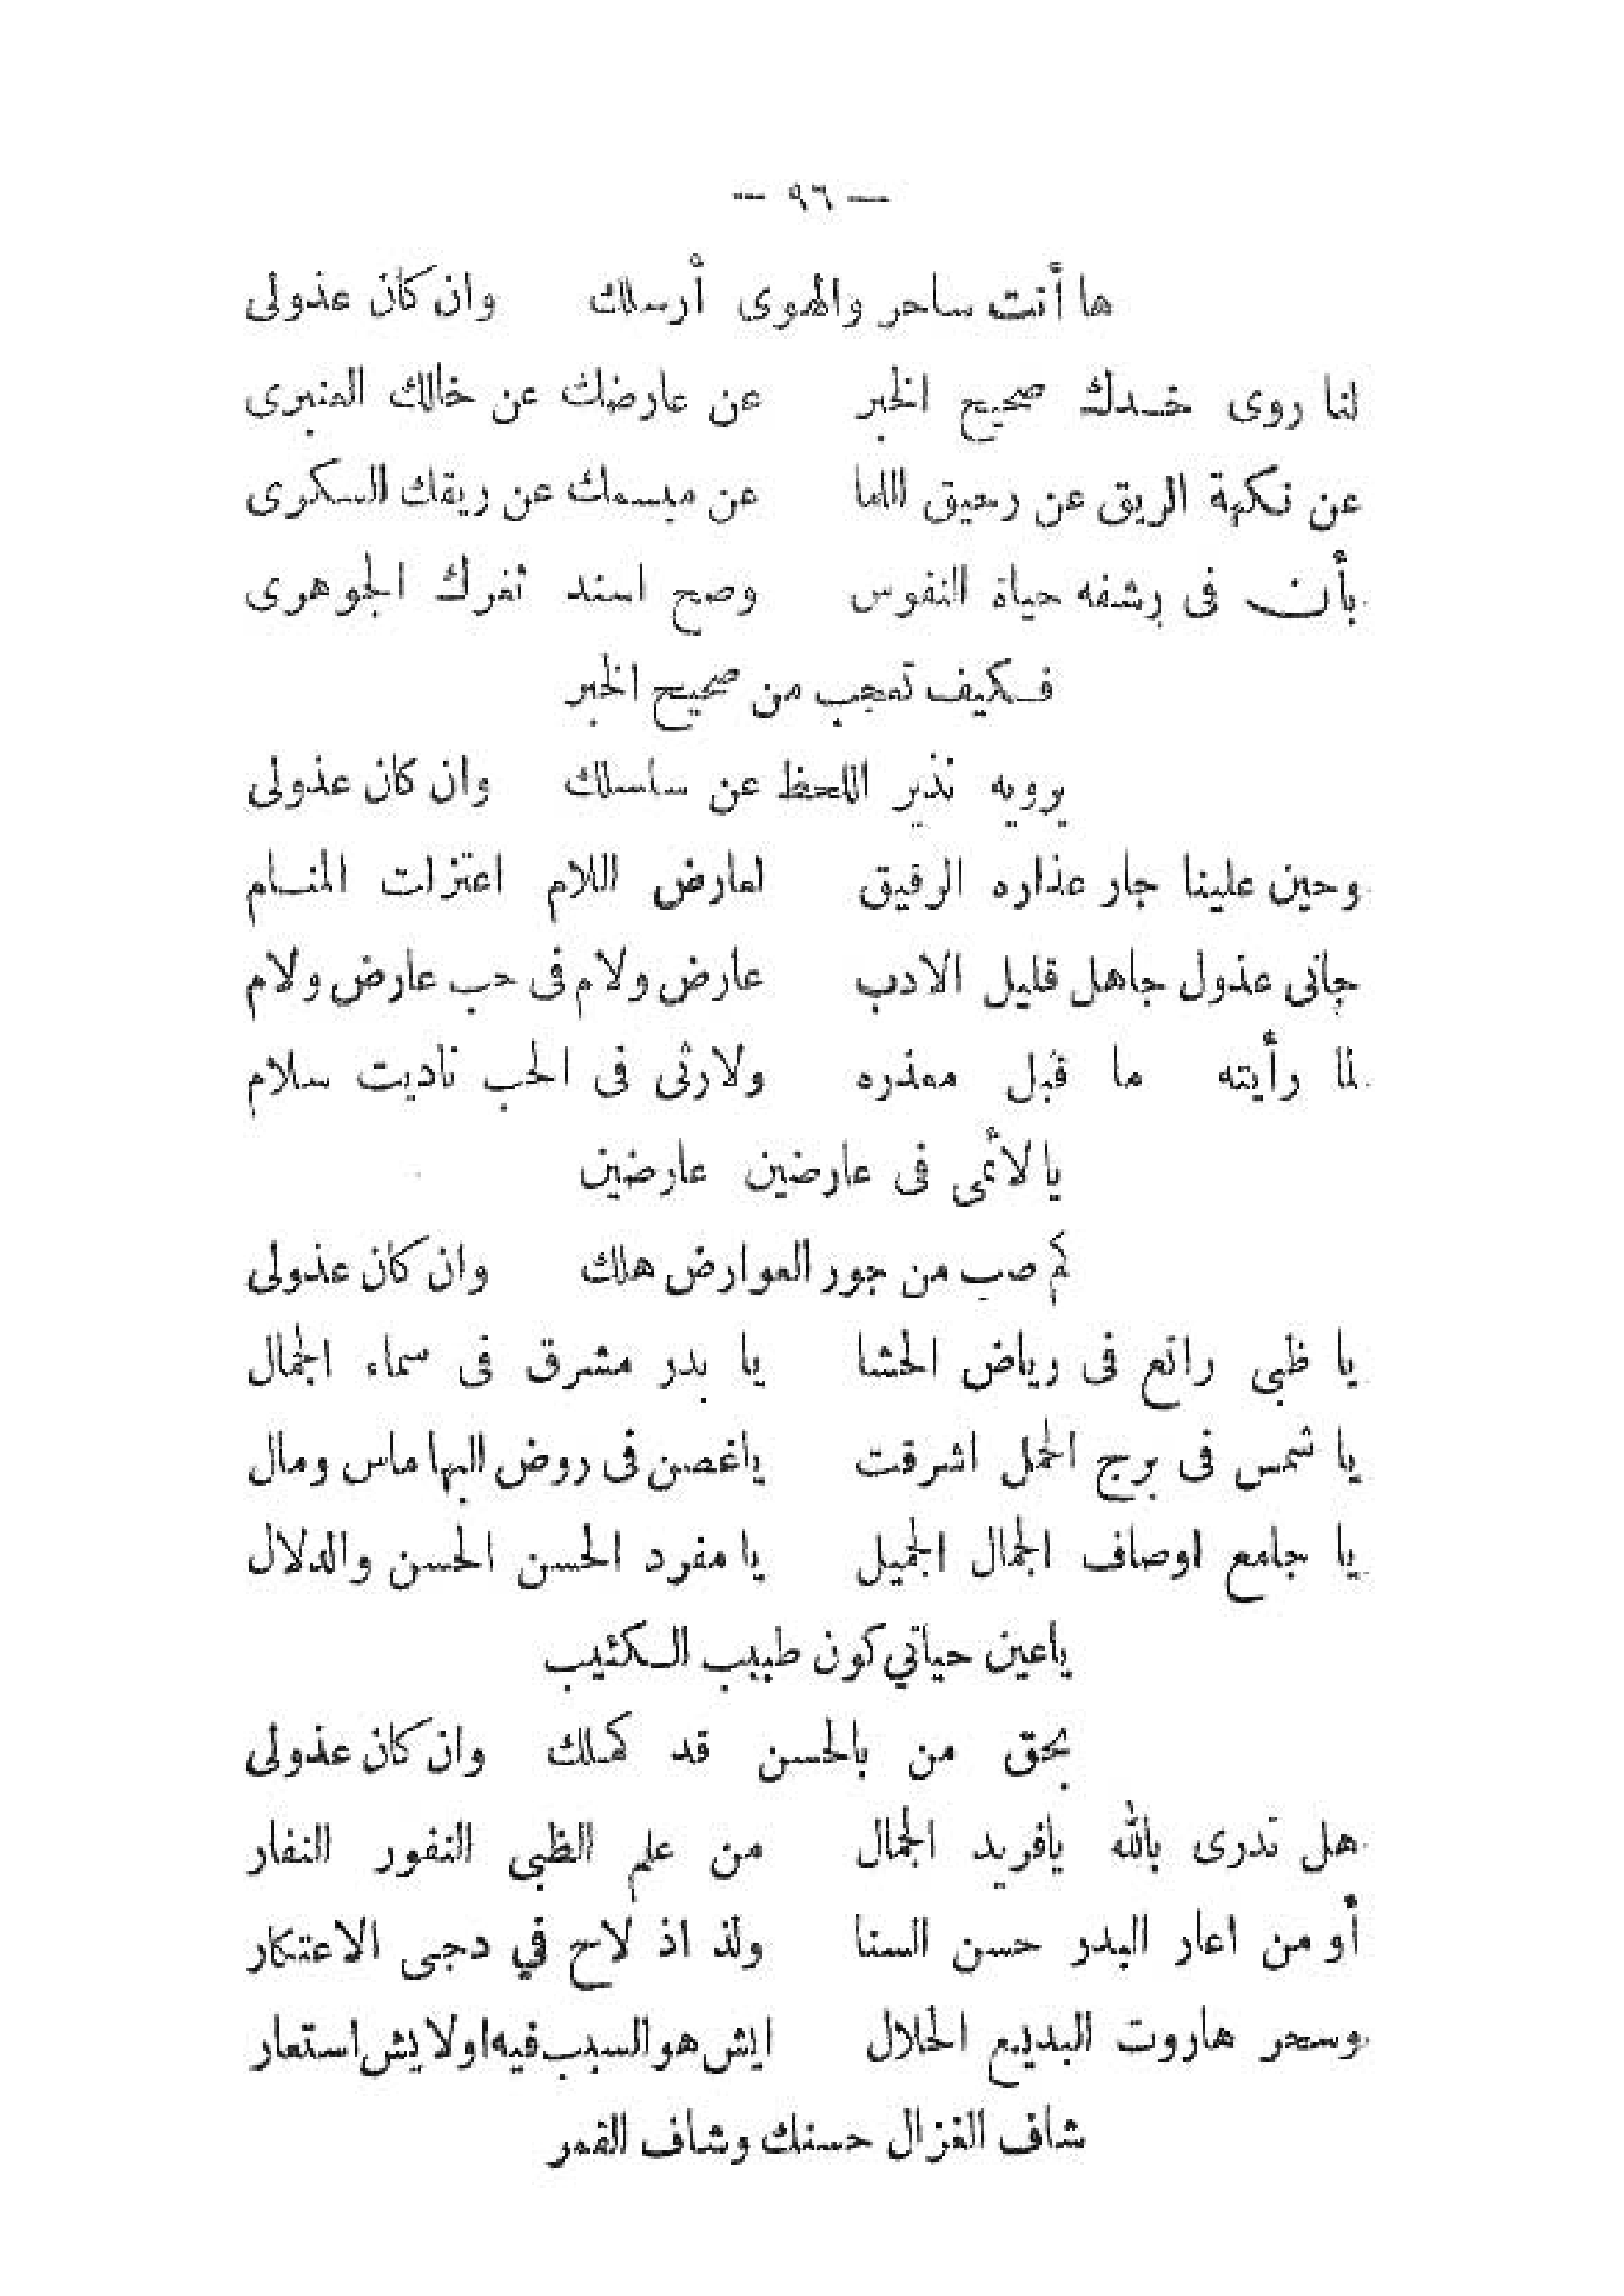 — ٩٦ —
ها أنت ساحر والهوى أرسلك وان كان عذولى
لنا روى خدك صحيح الخبر عن عارضك عن خالك العنبرى
عن نكهة الريق عن رحيق اللما عن مبسمك عن ريقك السكرى
بأن فى رشفه حياة النفوس وصح اسند ثغرك الجوهرى
فكيف تعجب من صحيح الخبر
يرويه نذير اللحظ عن سلسلك وان كان عذولى
وحين علينا جار عذاره الرقيق لعارض اللام اعتزلت المنام
جانى عذول جاهل قليل الادب عارض ولام فى حب عارض ولام
لما رأيته ما قبل معذره ولارثى فى الحب ناديت سلام
يا لأئمى فى عارضين عارضين
كم صب من جور العوارض هلك وان كان عذولى
يا ظبى راتع فى رياض الحشا يا بدر مشرق فى سماء الجمال
يا شمس فى برج الحمل اشرقت ياغصن فى روض البها ماس ومال
يا جامع اوصاف الجمال الجميل يا مفرد الحسن الحسن والدلال
ياعين حياتي كون طبيب الكئيب
بحق من بالحسن قد كملك وان كان عذولى
هل تدرى بالله يافريد الجمال من علم الظبى النفور النفار
أو من اعار البدر حسن السنا ولذ اذ لاح في دجى الاعتكار
وسحر هاروت البديع الحلال ايش هو السبب فيه او لايش استعار
شاف الغزال حسنك وشاف القمر